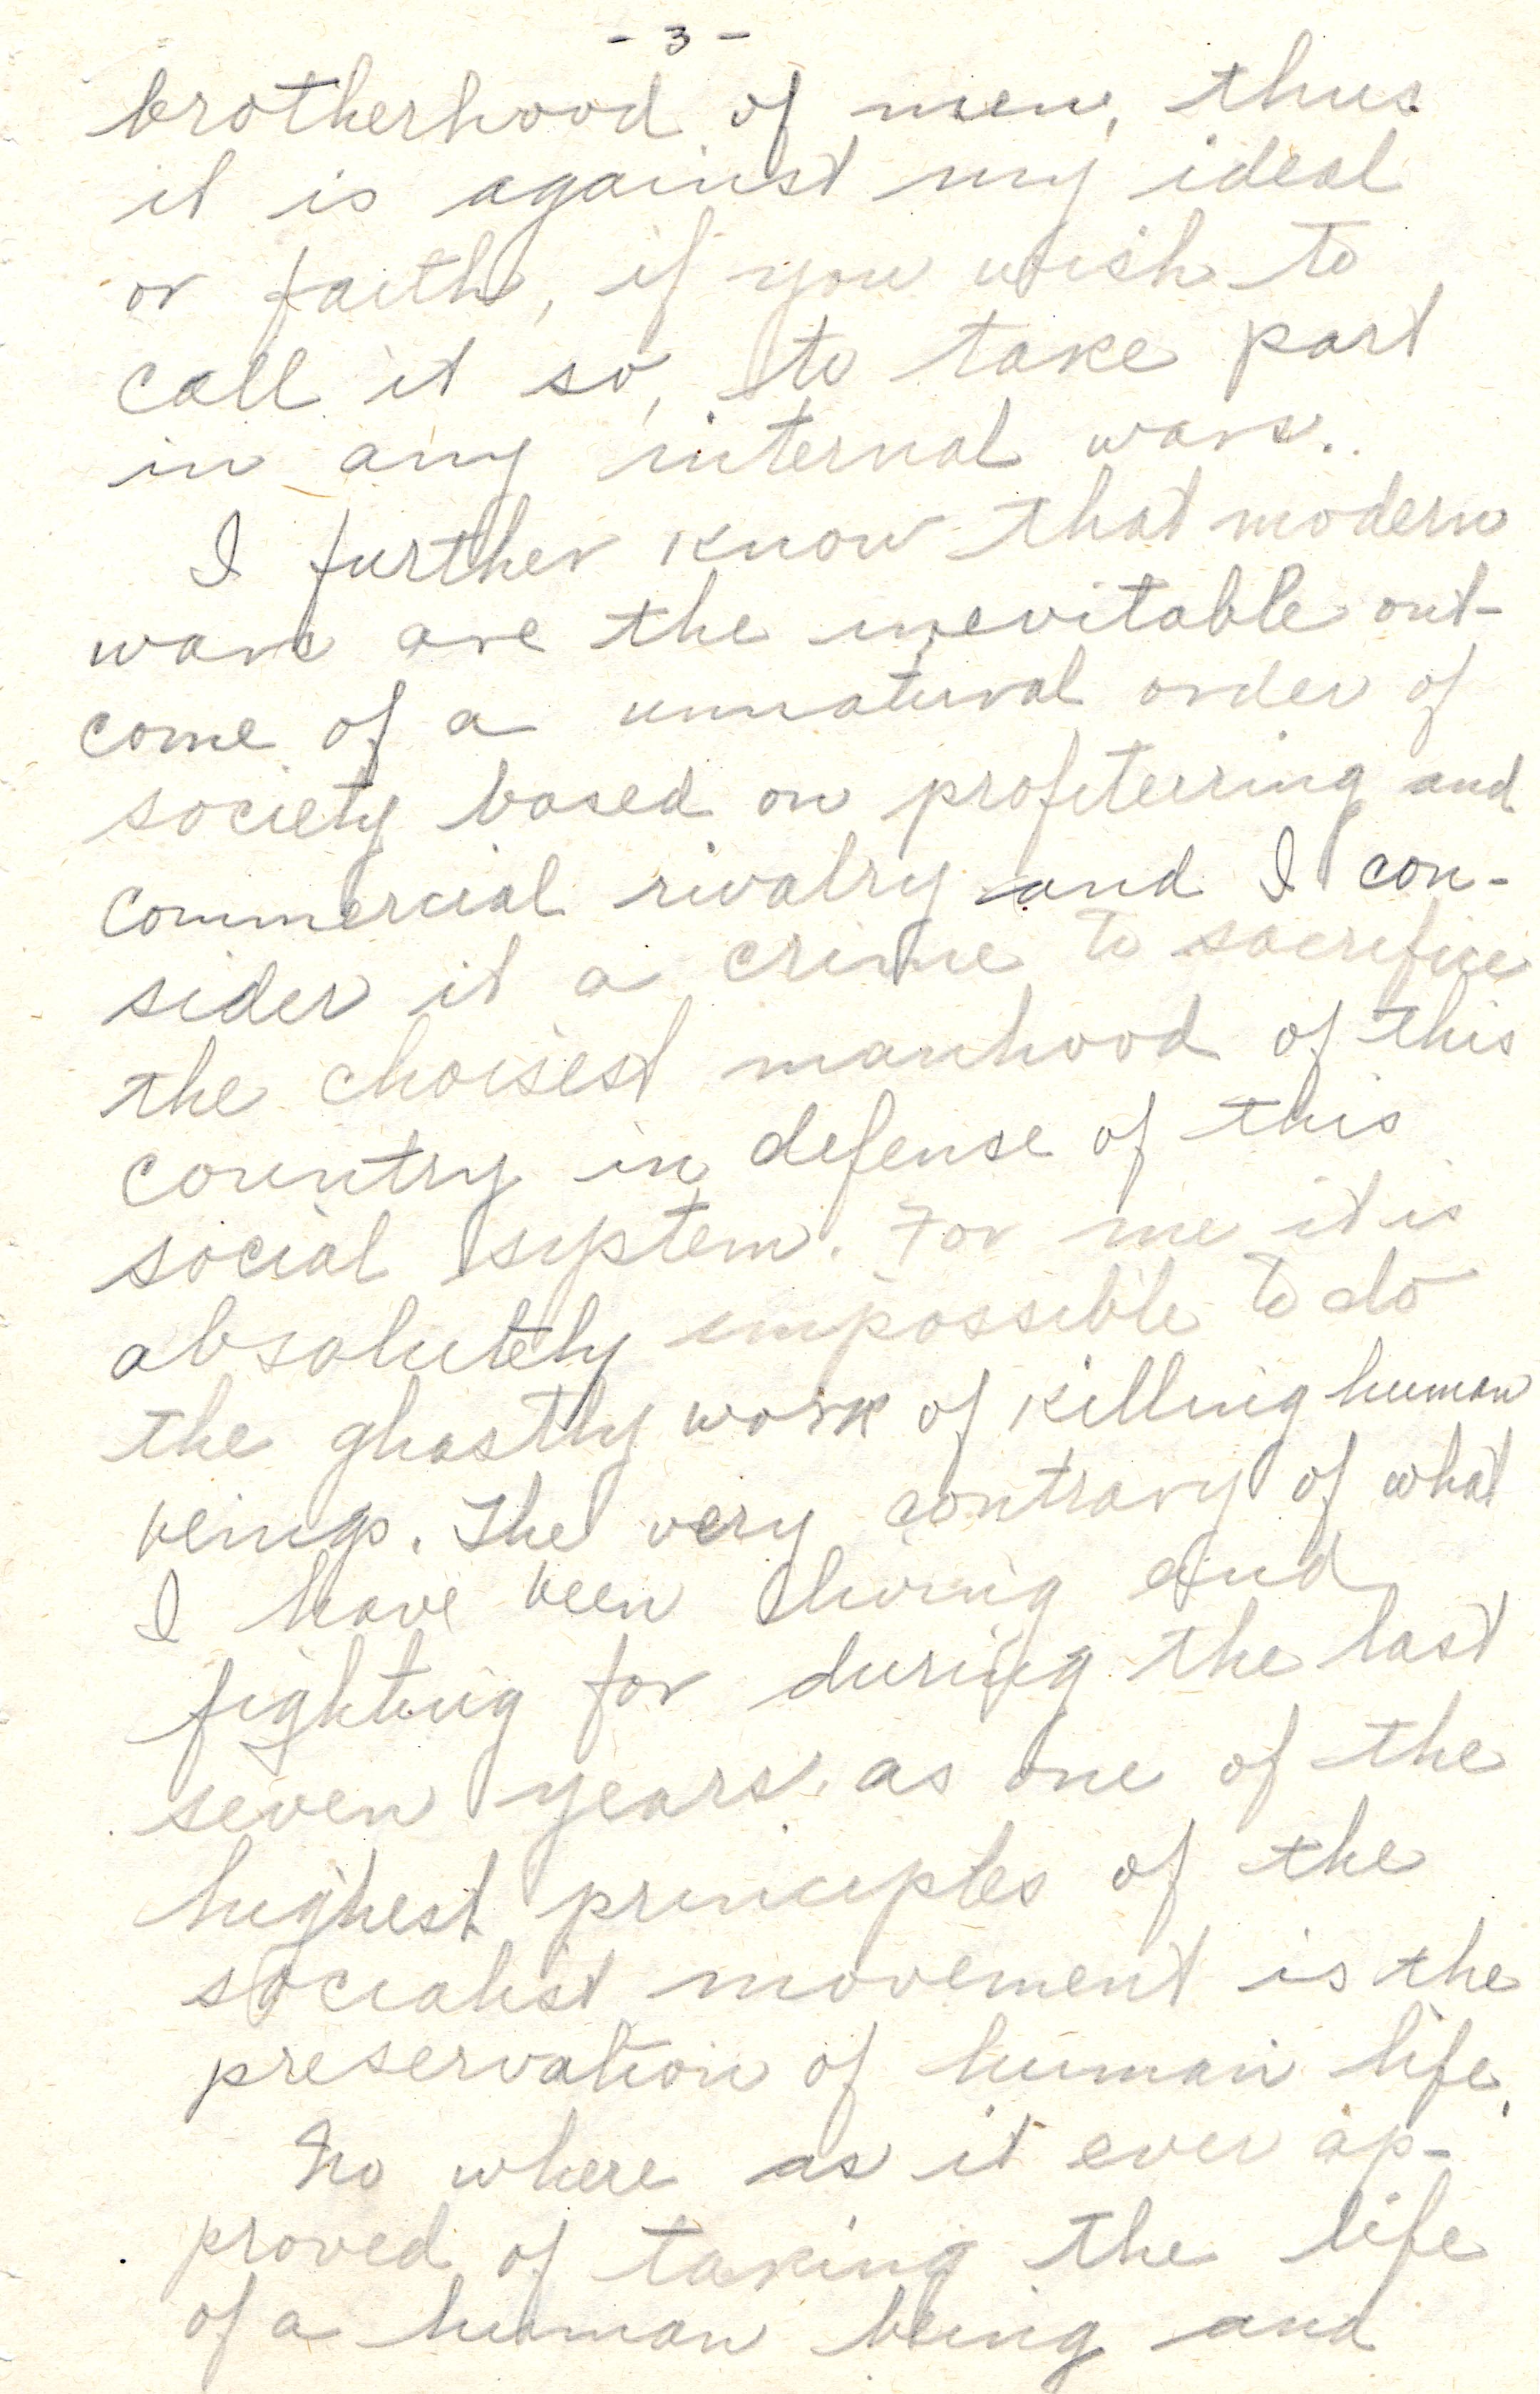 - 3 -
brotherhood of men, thus
it is against my ideal
or faith, if you wish to
call it so, to take part
in any internal wars.
I further know that modern
wars are the inevitable out-
come of a unnatural order of
society based on profiterring and
commercial rivalry and I con-
sider it a crime to sacrifice
the choisest manhood of this
country in defense of this
social system. For me it is
absolutely impossible to do
the ghastly work of killing human
beings. The very contrary of what
I have been living and
fighting for during the last
seven years. as one of the
highest principles of the
socialist movement is the
preservation of human life.
No where as it ever ap-
proved of taking the life
of a human being and